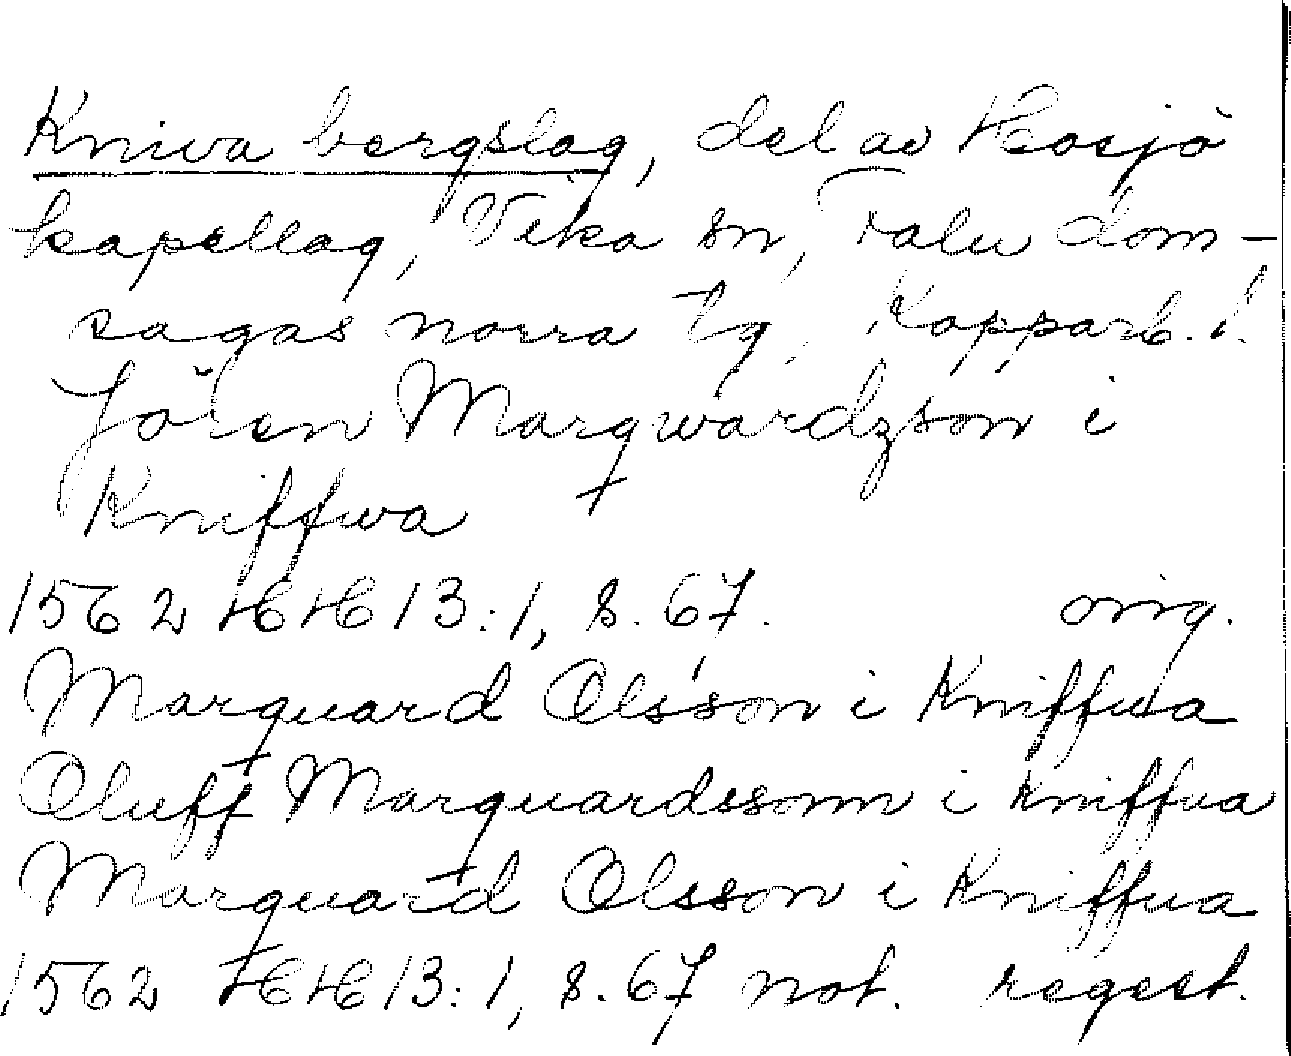 Kniva bergslag, del av Hosjö
kapellag, Vika sn, Falu dom-
sagas norra tg, Kopparb. l.
Jören Marqwardzson i
Kniffwa
1562 HH 13:1, s. 67. orig.
Marquard Olsson i Kniffua
Oluff Marquardssonn i Kniffua
Marquard Olsson i Kniffua
1562 HH 13:1, s. 67 not. regest.